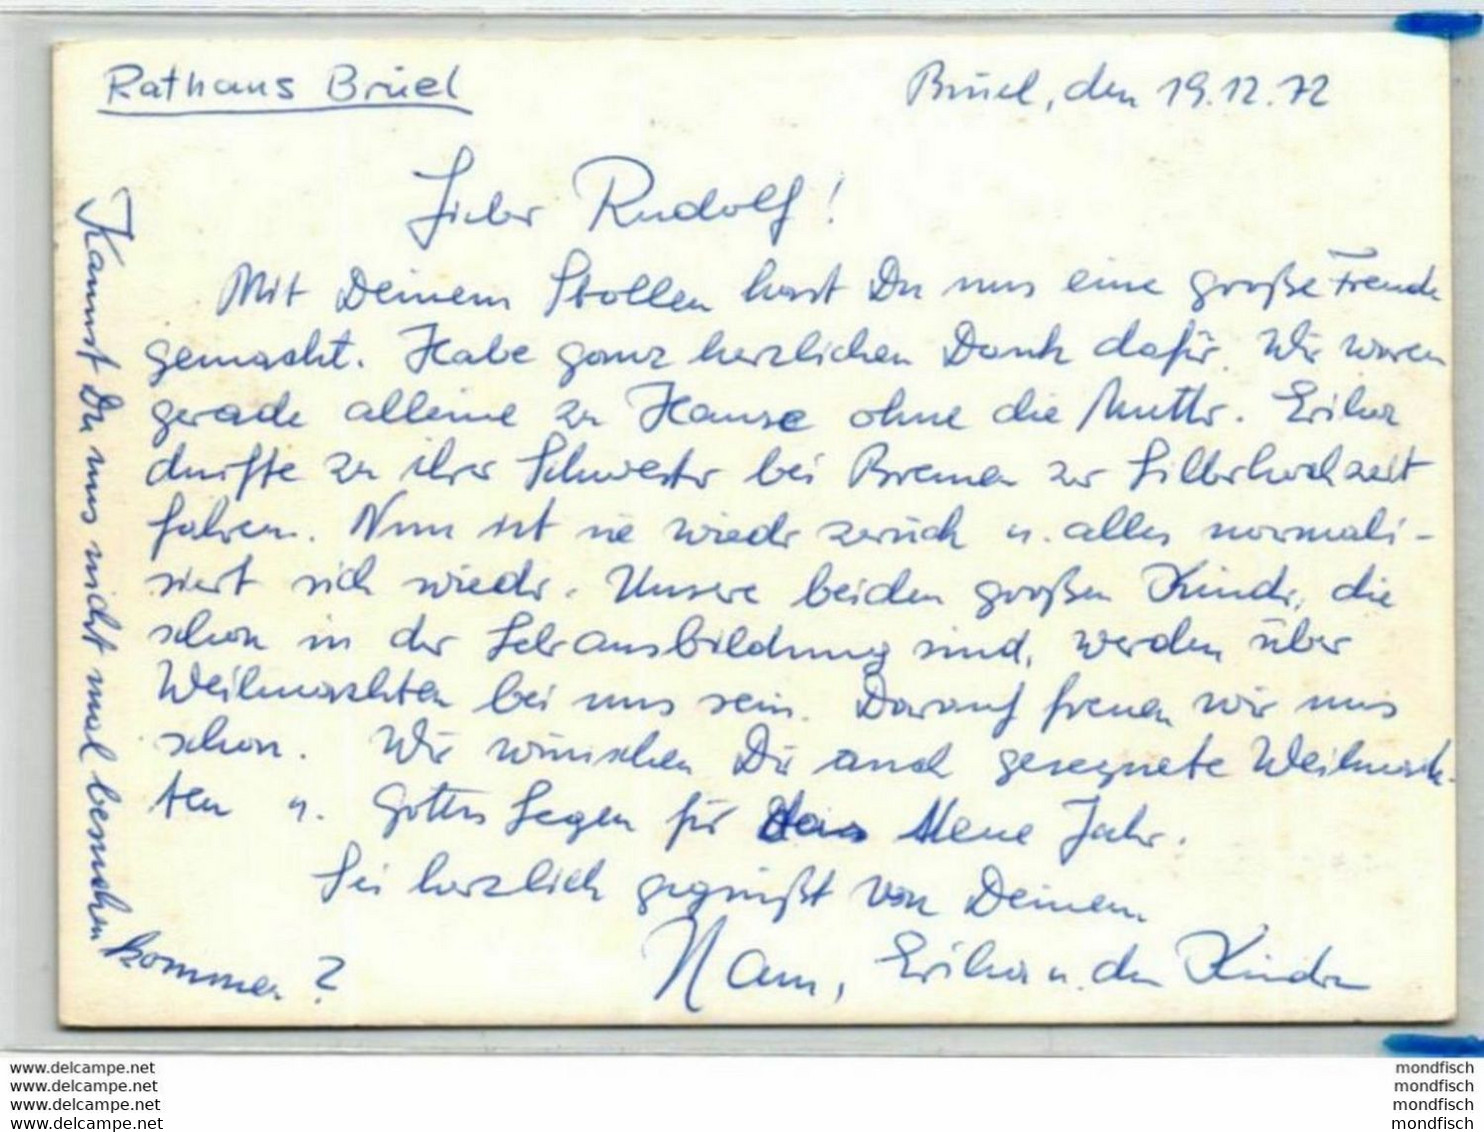 Rathaus Brüel
Brüel, den 19.12.72
Lieber Rudolf!
Mit Deinem Stollen hast Du uns eine große Freude
gemacht. Habe ganz herzlichen Dank dafür. Wir waren
gerade alleine zu Hause ohne die Mutter. Erika
durfte zu ihrer Schwester bei Bremen zur Silberhochzeit
fahren. Nun ist sie wieder zurück u. alles normali-
siert sich wieder. Unsere beiden großen Kinder, die
schon in der Lehrausbildung sind, werden über
Weihnachten bei uns sein. Darauf freuen wir uns
schon. Wir wünschen Dir auch gesegnete Weihnach-
ten u. Gottes Segen für das Neue Jahr.
Sei herzlich gegrüßt von Deinem
Erika u. den Kindern
Kannst Du uns nicht mal besuchen
kommen?
www.delcampe.net
www.delcampe.net
www.delcampe.net
www.delcampe.net
mondfisch
mondfisch
mondfisch
mondfisch